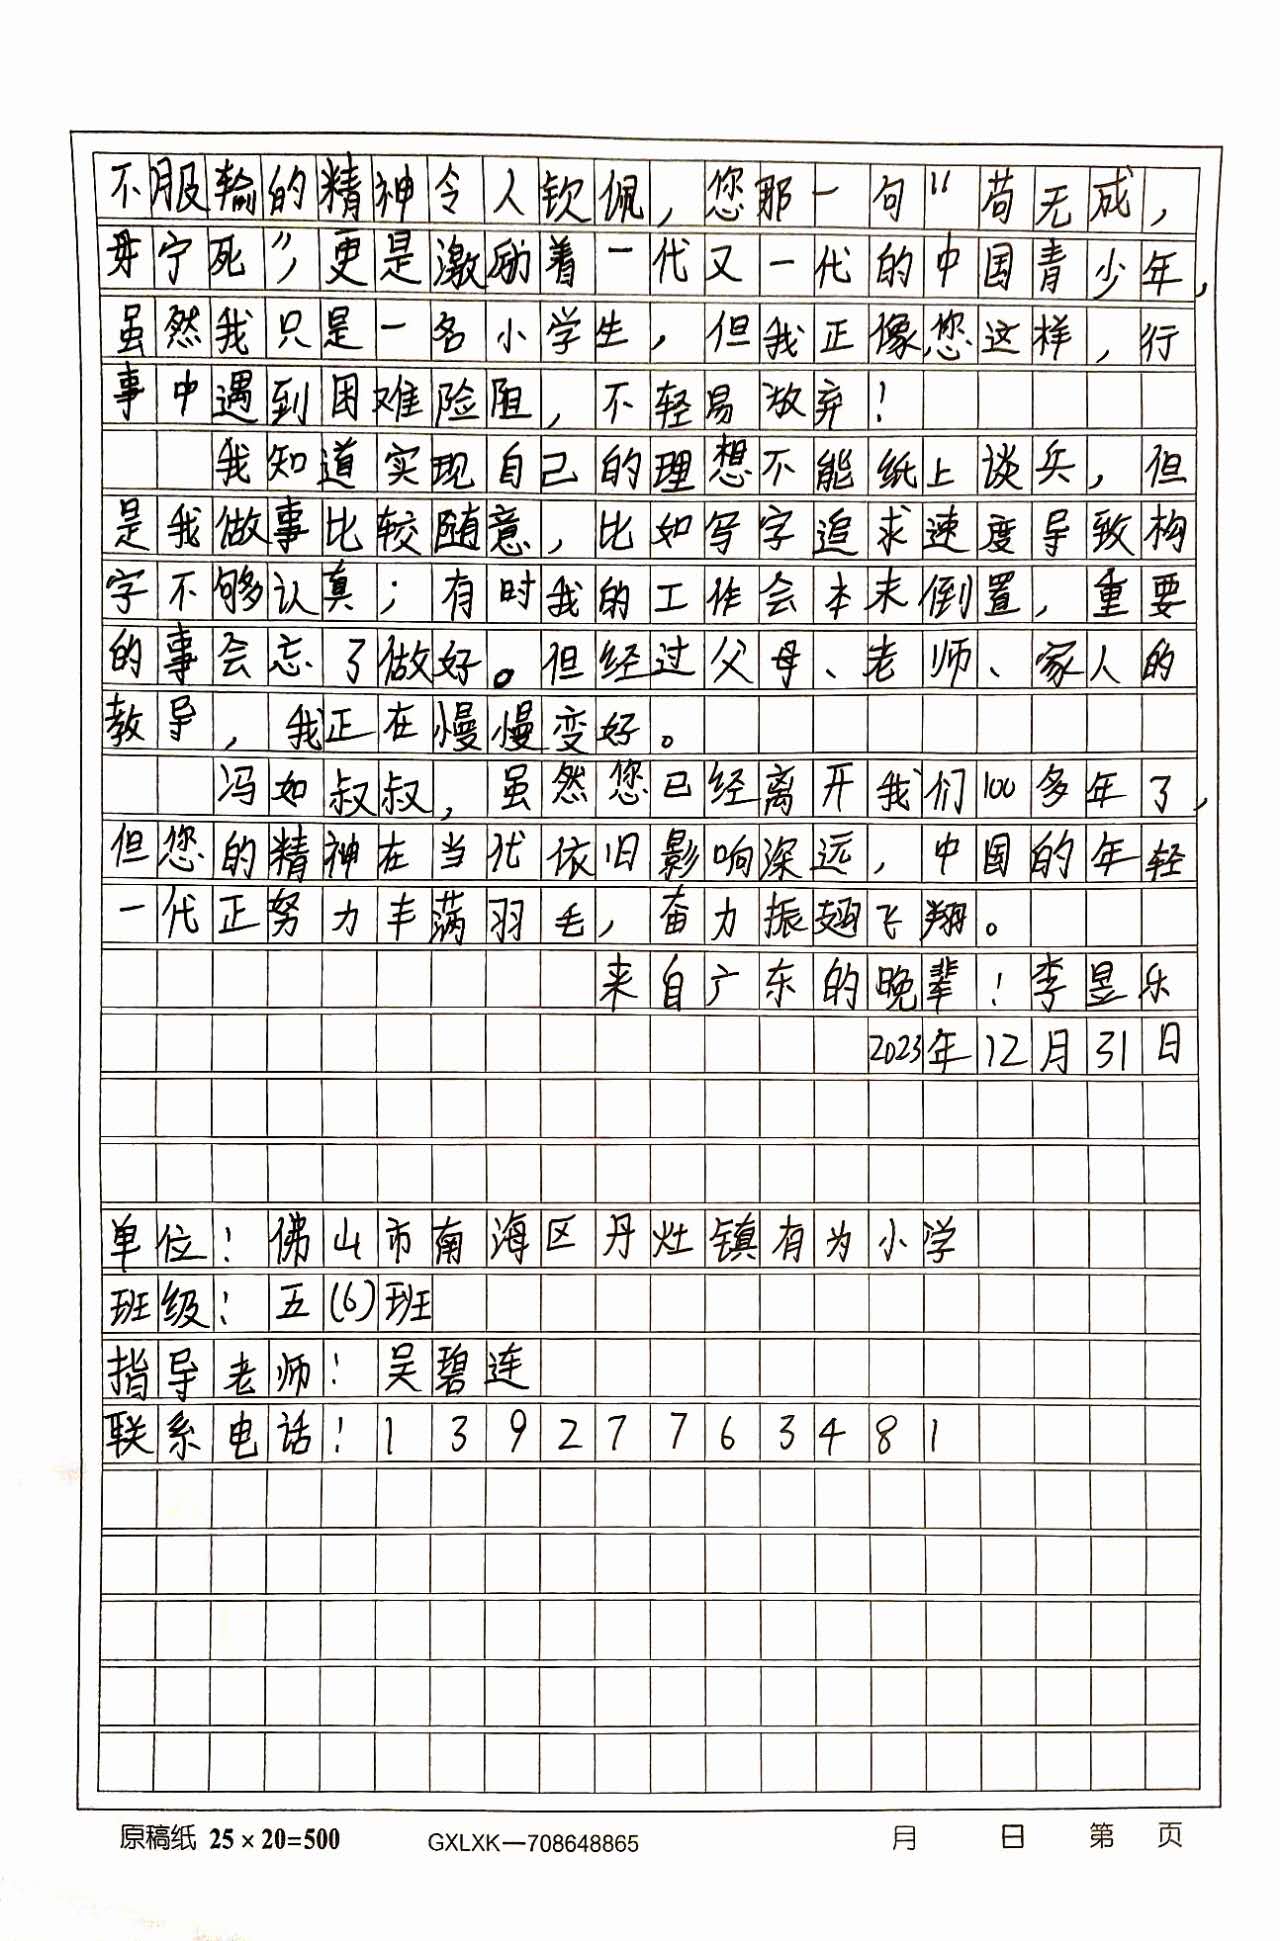 不服输的精神令人钦佩，您那一句“苟无成，
毋宁死”，更是激励着一代又一代的中国青少年，
虽然我只是一名小学生，但我正像您这样，行
事中遇到困难险阻，不轻易放弃！
我知道实现自己的理想不能纸上谈兵，但
是我做事比较随意，比如写字追求速度导致构
字不够认真；有时我的工作会本末倒置，重要
的事会忘了做好。但经过父母、老师、家人的
教导，我正在慢慢变好。
冯如叔叔，虽然您已经离开我们100多年了，
但您的精神在当代依旧影响深远，中国的年轻
一代正努力丰满羽毛，奋力振翅飞翔。
来自广东的晚辈！李昱乐
2023年12月31日
单位！佛山市南海区丹灶镇有为小学
班级！五(6)班
指导老师！吴碧连
联系电话！13927763481
原稿纸 25×20=500 GXLXK—708648865 月 日 第 页